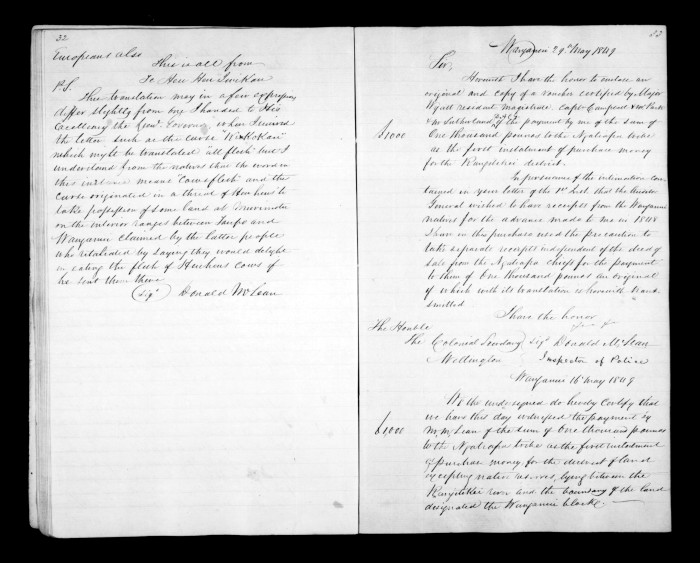 32
Europeans also
This is all from
To Heu Heu Iwikau
P.S.
This translation may in a few expressions
differ slightly from one I handed to His
Excellency the Lieut. Governor when I received
the letter such as the curse "Kai Kokau"
which might be translated "all flesh" but I
understand from the natives that the word in
this instance means "Cows flesh" and the
curse originated in a threat of Heu heu's to
take possession of some land at
on the interior ranges between Taupo and
Wanganui claimed by the latter people
who retaliated by saying they would delight
in eating the flesh of Heuheu's Cows if
he sent them there
(Sigd) Donald McLean
33
Wanganui 29th May 1849
Sir,
Herewith I have the honor to enclose an
original and copy of a voucher certified by Major
Wyatt resident magistrate Captn Campbell & Mr Park
& Mr Sutherland of the payment by me of the sum of
£1000
One thousand pounds to the Ngatiapa tribe
as the first instalment of purchase money
for the Rangitikei district.
In pursuance of the intimation con
tained in your letter of the 1st Inst that the Auditor
General wished to have receipts from the Wanganui
natives for the advance made to me in 1848
I have in this purchase used the precaution to
take separate receipt independent of the deed of
sale from the Ngatiapa chiefs for the payment
to them of One thousand pounds an original
of which with its translation is herewith trans
mitted
I have the honor
The Honble
The Colonial Secretary Sigd Donald McLean
Wellington Inspector of Police
Wanganui 16 May 1849
We the undersigned do hereby Certify that
we have this day witnessed the payment by
£1000
Mr McLean of the sum of One thousand pounds
to the Ngatiapa tribe as the first instalment
of purchase money for the district of land
excepting native reserves, lying between the
Rangitikei river and the boundary of the land
designated the Wanganui blocke.